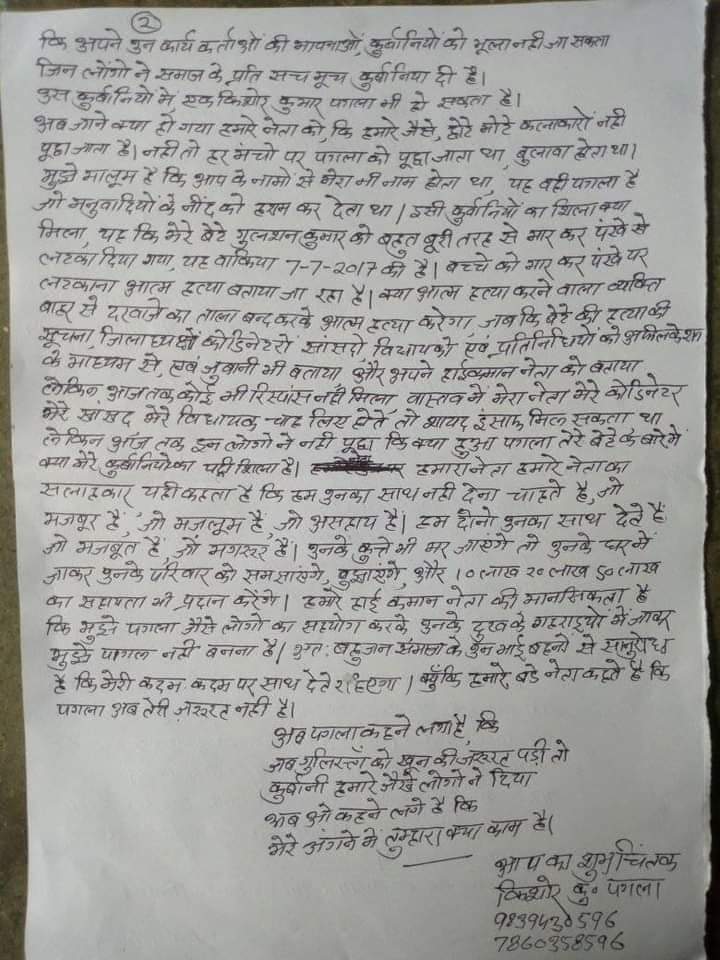 2
कि अपने उन कार्य कर्ताओं की भावनाओं, कुर्वानियों को भूला नही जा सकता
जिन लोंगो ने समाज के प्रति सच मूच कुर्वानिया दी है।
उस कुर्वानियों में एक किशोर कुमार पगला भी हो सकता है।
अब जाने क्या हो गया हमारे नेता को, कि हमारे जैसे, छोटे मोटे कलाकारों नही
पूछा जाता है। नही तो हर मंचो पर पगला को पूछा जाता था, बुलावा होता था।
मुझे मालूम है कि आप के नामों से मेरा भी नाम होता था, यह वही पगला है
जो मनुवादियों के नींद को हराम कर देता था। इसी कुर्वानियों का शिला क्या
मिला, यह कि मेरे बेटे गुलशन कुमार को बहुत बूरी तरह से मार कर पंखे से
लटका दिया गया, यह वाकिया 7-7-2017 की है। बच्चे को मार कर पंखे पर
लटकाना आत्म हत्या बताया जा रहा है। क्या आत्म हत्या करने वाला व्यक्ति
बाहर से दरवाजे का ताला बन्द करके आत्म हत्या करेगा, जब कि बेटे की हत्या की
सूचना, जिलाध्यक्षों कोडिनेटरो सांसदो, विधायको एवं प्रतिनिधियों को अपीलकेशन
के माध्यम से, एवं जुवानी भी बताया और अपने हाईकमान नेता को बताया
लेकिन आज तक कोई भी रिस्पांस नही मिला वास्तव में मेरा नेता मेरे कोडिनेटर
मेरे सांसद मेरे विधायक चाह लिए होते तो शायद इंसाफ मिल सकता था
लेकिन आज तक इन लोगो ने नही पूछा कि क्या हुआ पगला तेरे बेटे के बारे में
क्या मेरे कुर्वानियो का यही शिला है। हमारा नेता हमारे नेता का
सलाहकार यही कहता है कि हम उनका साथ नही देना चाहते है, जो
मजबूर है, जो मजलूम है, जो असहाय है। हम दोनो उनका साथ देते है
जो मजबूत है, जो मगरूर है। उनके कुत्ते भी मर जाएंगे तो उनके घर में
जाकर उनके परिवार को समझाएंगे, बुझाएंगे, और 10 लाख 20 लाख 50 लाख
का सहायता भी प्रदान करेंगे। हमारे हाई कमान नेता की मानसिकता है
कि मुझे पगला जैसे लोगों का सहयोग करके उनके दुख के गहराइयो में जाकर
मुझे पागल नही बनना है। अतः बहुजन समाज के उन भाई बहनो से सानुरोध
है कि मेरी कदम कदम पर साथ देते रहिएगा। क्यूँकि हमारे बडे नेता कहते है कि
पगला अब तेरी जरूरत नही है।
अब पगला कहने लगा है, कि
जब गुलिस्ताँ को खून की जरूरत पड़ी तो
कुर्वानी हमारे जैसे लोगो ने दिया
अब ओ कहने लगे है कि
मेरे अंगने में तुम्हारा क्या काम है।
आप का शुभ चिंतक
किशोर कु॰ पगला
9839430596
7860358596